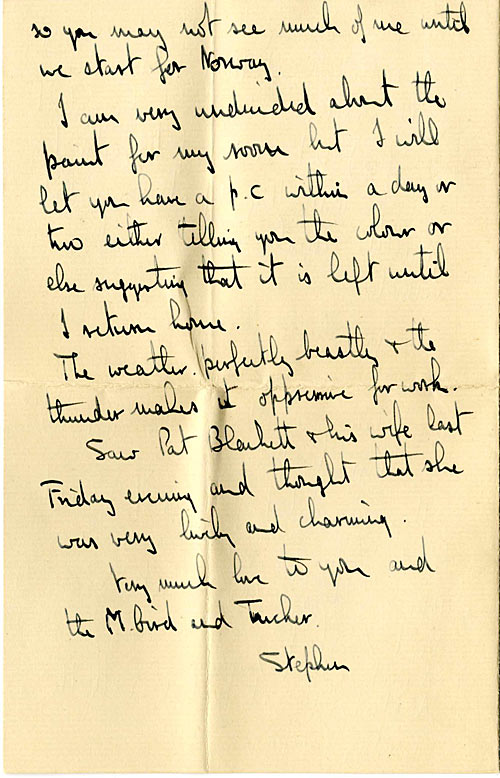 so you may not see much of me until
we start for Norway.
I am very undecided about the
paint for my room but I will
let you have a p.c within a day or
two either telling you the colour or
else suggesting that it is left until
I return home.
The weather perfectly beastly & the
thunder makes it oppressive for work.
Saw Pat Blackett & his wife last
Friday evening and thought that she
was very lively and charming.
Very much love to you and
the M.bird and
Stephen